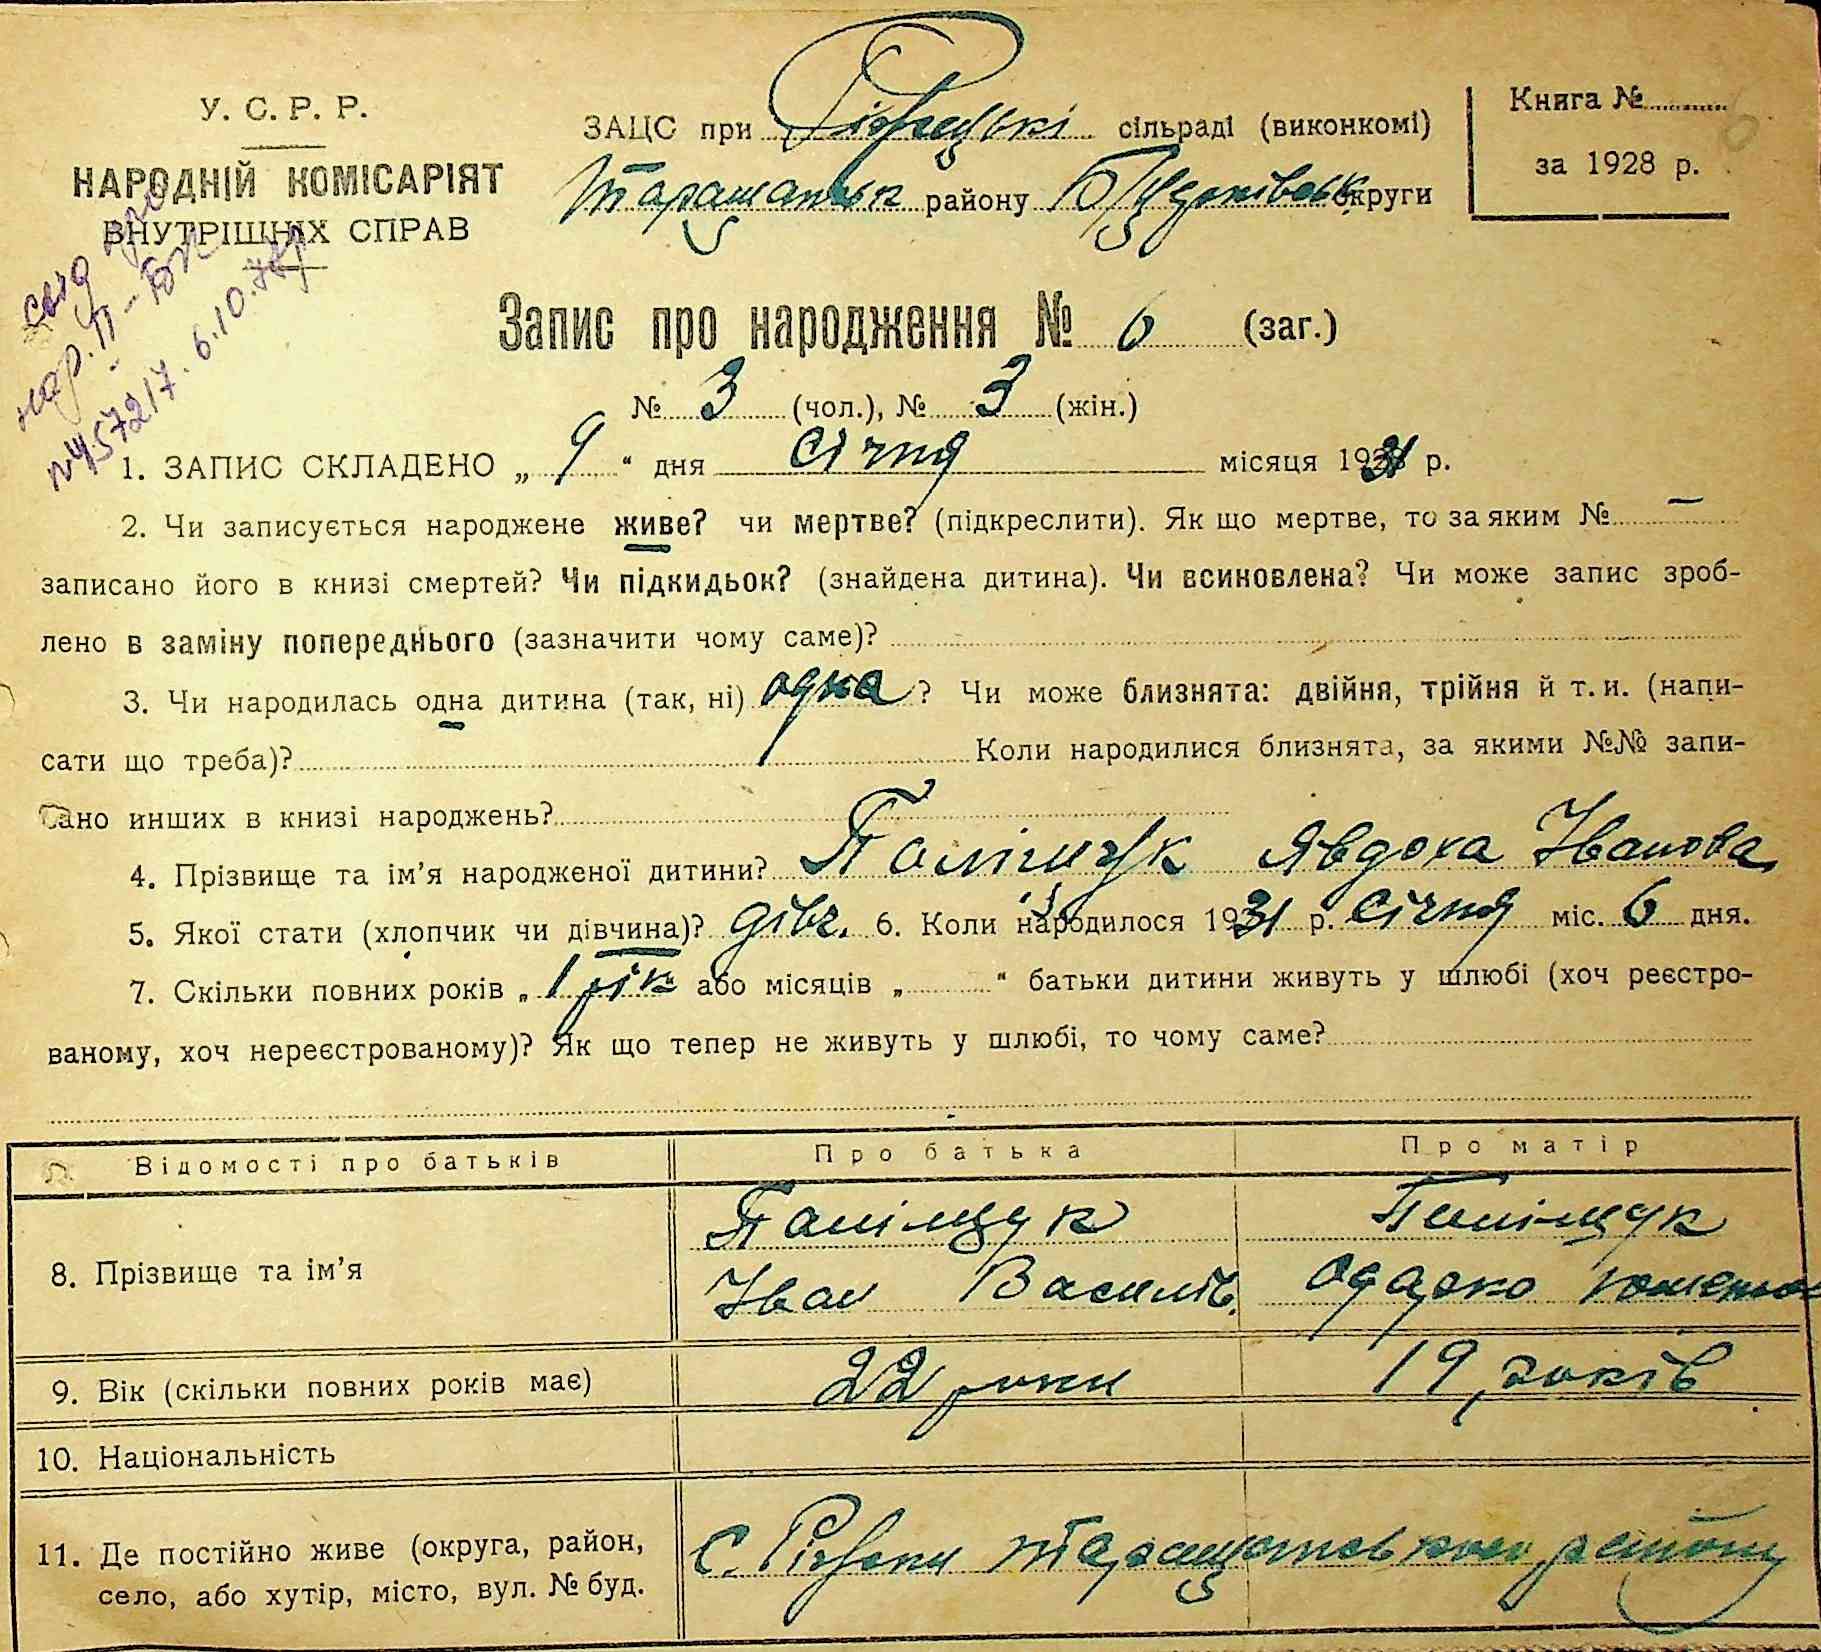 У. С. Р. Р.
НАРОДНІЙ КОМІСАРІЯТ
ВНУТРІШНІХ СПРАВ
ЗАЦС при сільраді (виконкомі)
Таращанськ району округи
Книга №
за 1928 р.
№ 457217. 6.10.
Запис про народження № 6 (заг.)
№ 3 (чол.), № 3 (жін.)
1. ЗАПИС СКЛАДЕНО „ 9 “ дня січня місяця 1931 р.
2. Чи записується народжене живе? чи мертве? (підкреслити). Як що мертве, то за яким № —
записано його в книзі смертей? Чи підкидьок? (знайдена дитина). Чи всиновлена? Чи може запис зроб-
лено в заміну попереднього (зазначити чому саме)?
3. Чи народилась одна дитина (так, ні) одна ? Чи може близнята: двійня, трійня й т. и. (напи-
сати що треба)? Коли народилися близнята, за якими №№ запи-
сано инших в книзі народжень?
4. Прізвище та ім’я народженої дитини? Поліщук Явдоха Іванова
5. Якої стати (хлопчик чи дівчина)? дівч. 6. Коли народилося 1931 р. січня міс. 6 дня.
7. Скільки повних років „ 1 рік “ або місяців „ “ батьки дитини живуть у шлюбі (хоч реєстро-
ваному, хоч нереєстрованому)? Як що тепер не живуть у шлюбі, то чому саме?
Відомості про батьків Про батька Про матір
8. Прізвище та ім’я Поліщук Іван Василів. Поліщук Одарко
9. Вік (скільки повних років має) 22 роки 19 років
10. Національність
11. Де постійно живе (округа, район, с. Ріжки Таращанського району
село, або хутір, місто, вул. № буд.